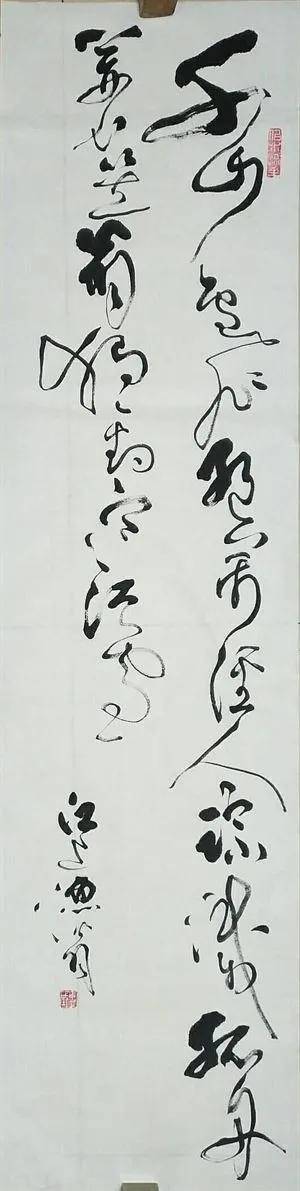 千山鸟飞绝万径人踪灭孤舟
蓑笠翁独钓寒江雪
渔翁